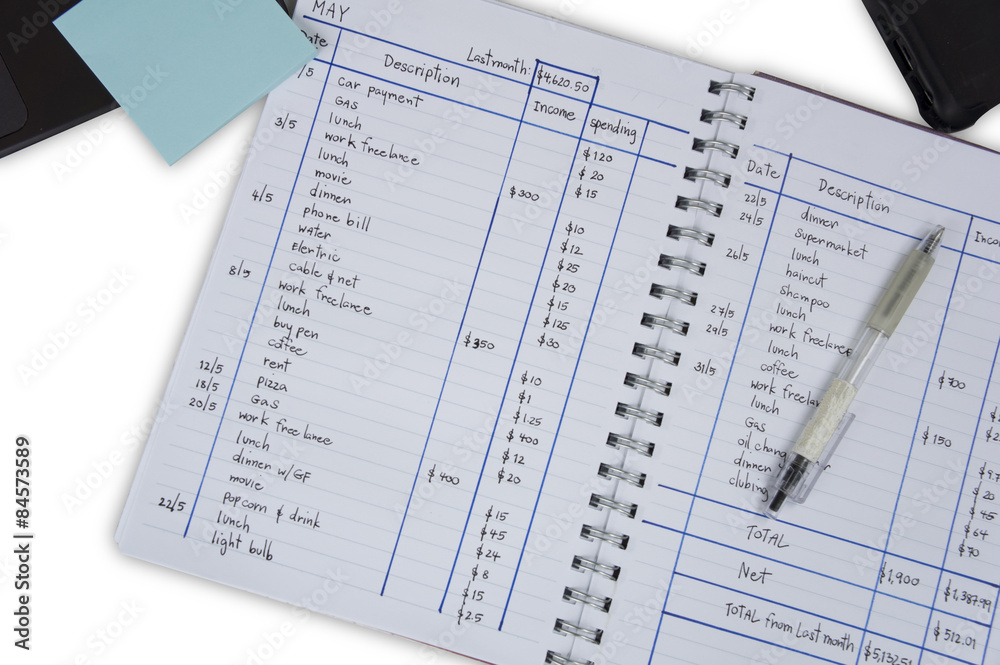 MAY
Last month: $4,620.50
Date Description Income spending
1/5 Car payment $120
GAS $20
lunch $15
3/5 work freelance $300
lunch $10
movie $12
dinner $25
4/5 phone bill $20
water $15
Elertric $125
cable & net $30
8/5 work freelance $350
lunch $10
buy pen $1
coffee $1.25
rent $400
12/5 pizza $12
18/5 Gas $20
20/5 work freelance $400
lunch $15
dinner w/GF $45
movie $24
popcorn & drink $8
22/5 lunch $15
light bulb $2.5
Date Description
22/5 dinner
24/5 supermarket
lunch
26/5 haircut
shampoo
lunch
27/5 work freelance $700
29/5 lunch
coffee
31/5 work $150
lunch
Gas
oil $20
dinner $45
clubing $64
$70
TOTAL $1,900 $1,387.99
Net $512.01
TOTAL from last month
Adobe Stock | #84573589